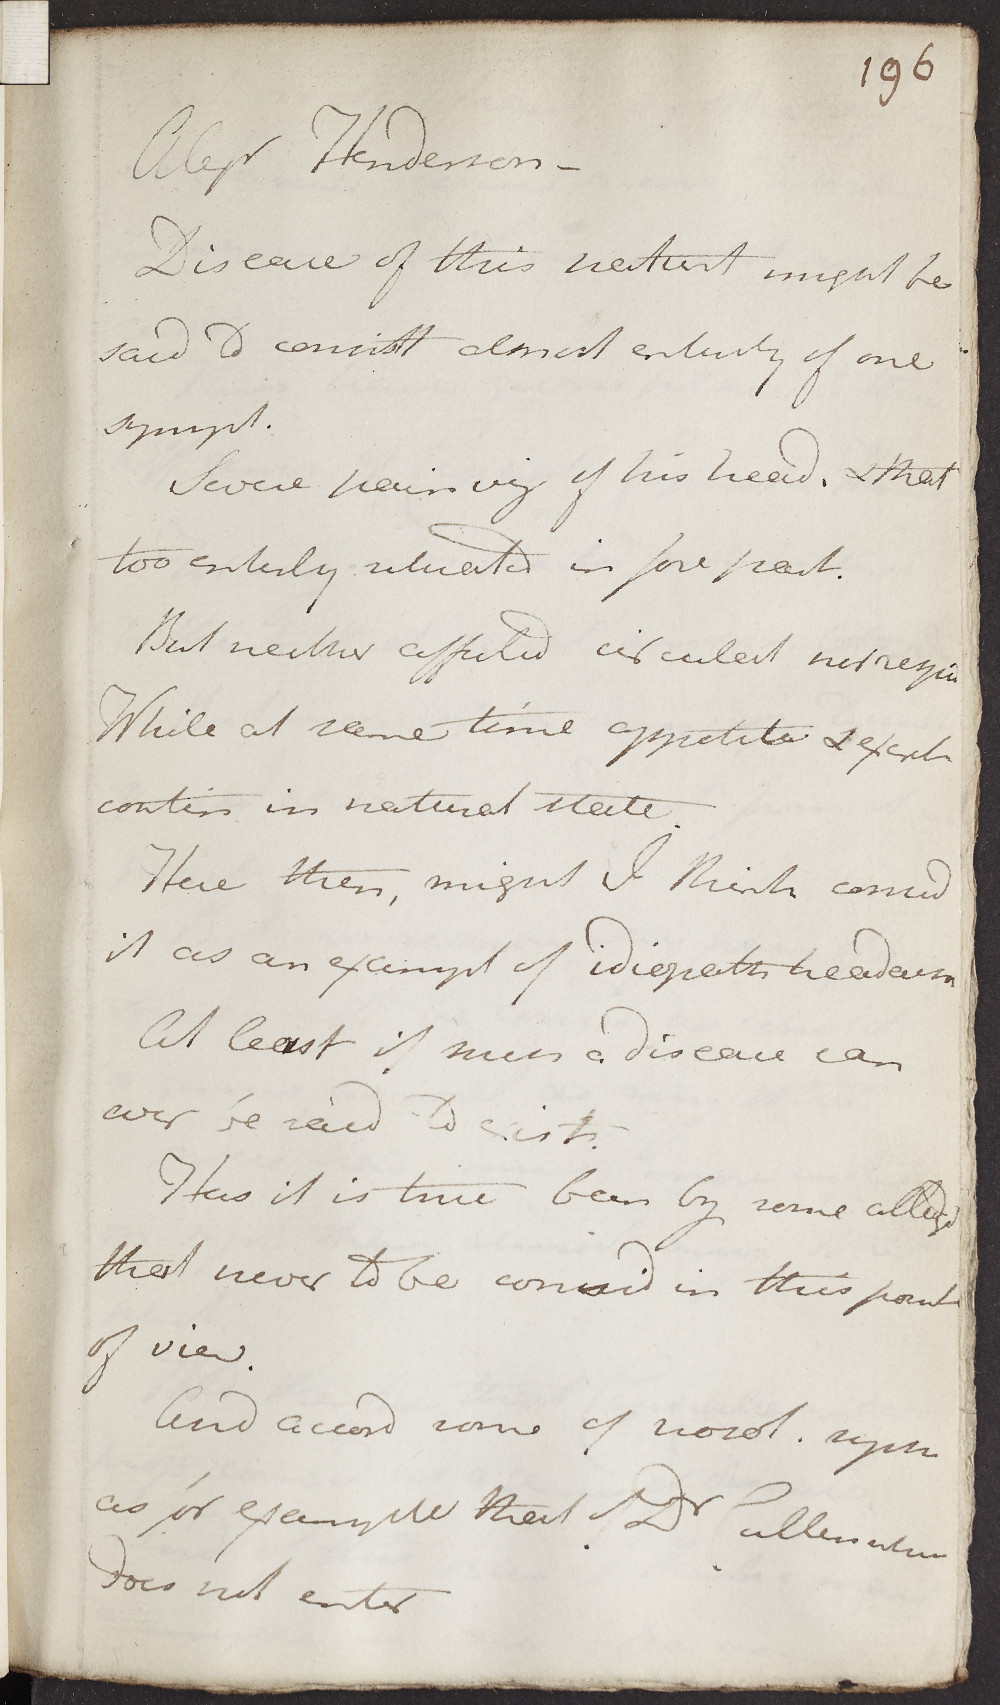 196
Alexr Henderson -
Disease of this nature might be
said to consist almost entirely of one
sympt.
Severe pain of his head. & that
too entirely situated in fore part.
But neither affected circulat nor respir
While at same time appetite &
contin in natural state.
Here then, might I think consid
it as an exampl of idiopath
At least if such a disease can
ever be said to exist.
Has it is true been by some alledgd
that never to be consid in this point
of view.
And accord some of nosol. syst
as for example that of Dr Cullen
does not enter